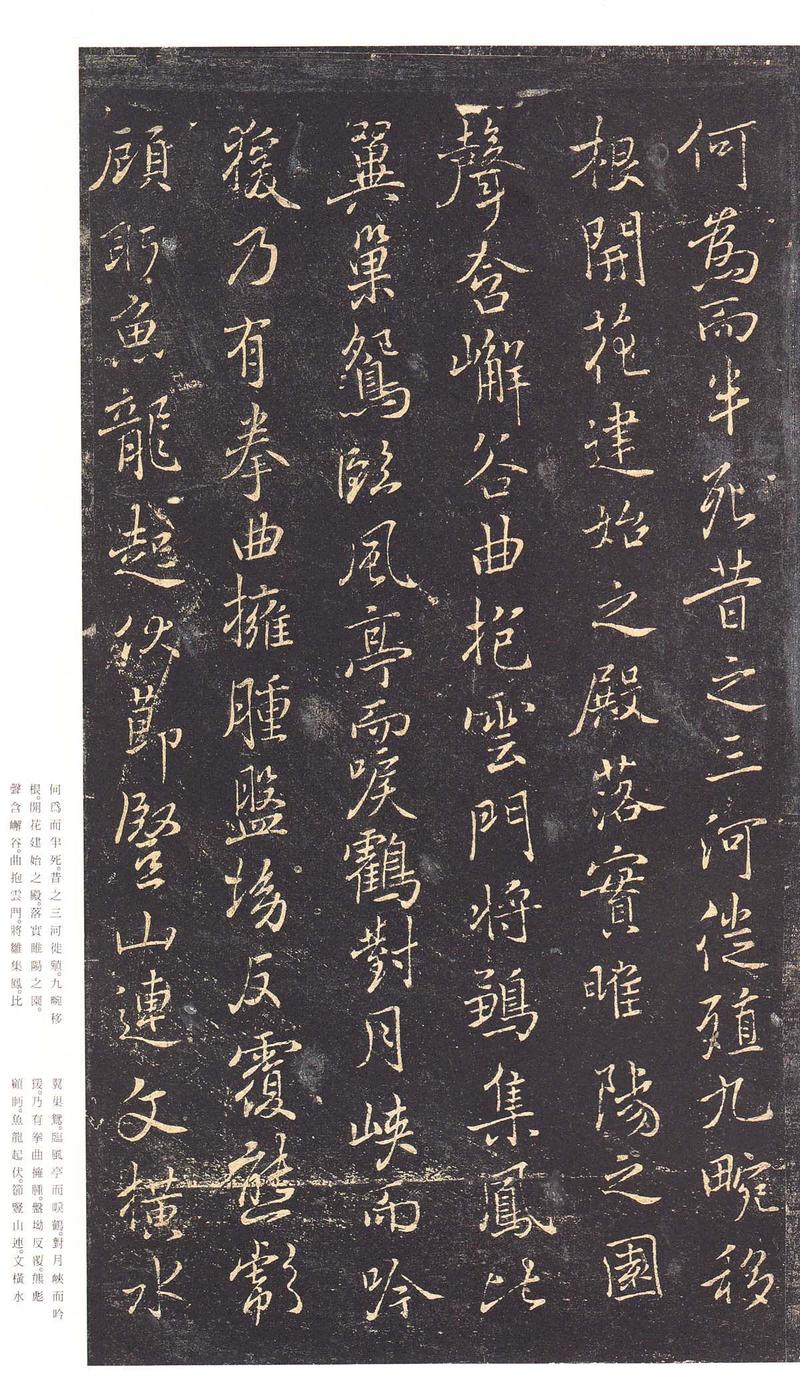 何為而半死昔之三河徙殖九畹移
根開花建始之殿落實睢陽之園
聲含嶰谷曲抱雲門將鶵集鳳比
翼巢鴛臨風亭而唳鶴對月峽而吟
猨乃有拳曲擁腫盤坳反覆熊彪
顧眄魚龍起伏節豎山連文橫水
何爲而半死。昔之三河徙殖。九畹移
根。開花建始之殿。落實睢陽之園。
聲含嶰谷。曲抱雲門。將雛集鳳。比
翼巢鴛。臨風亭而唳鶴。對月峽而吟
猨。乃有拳曲擁腫。盤坳反覆。熊彪
顧眄。魚龍起伏。節豎山連。文橫水